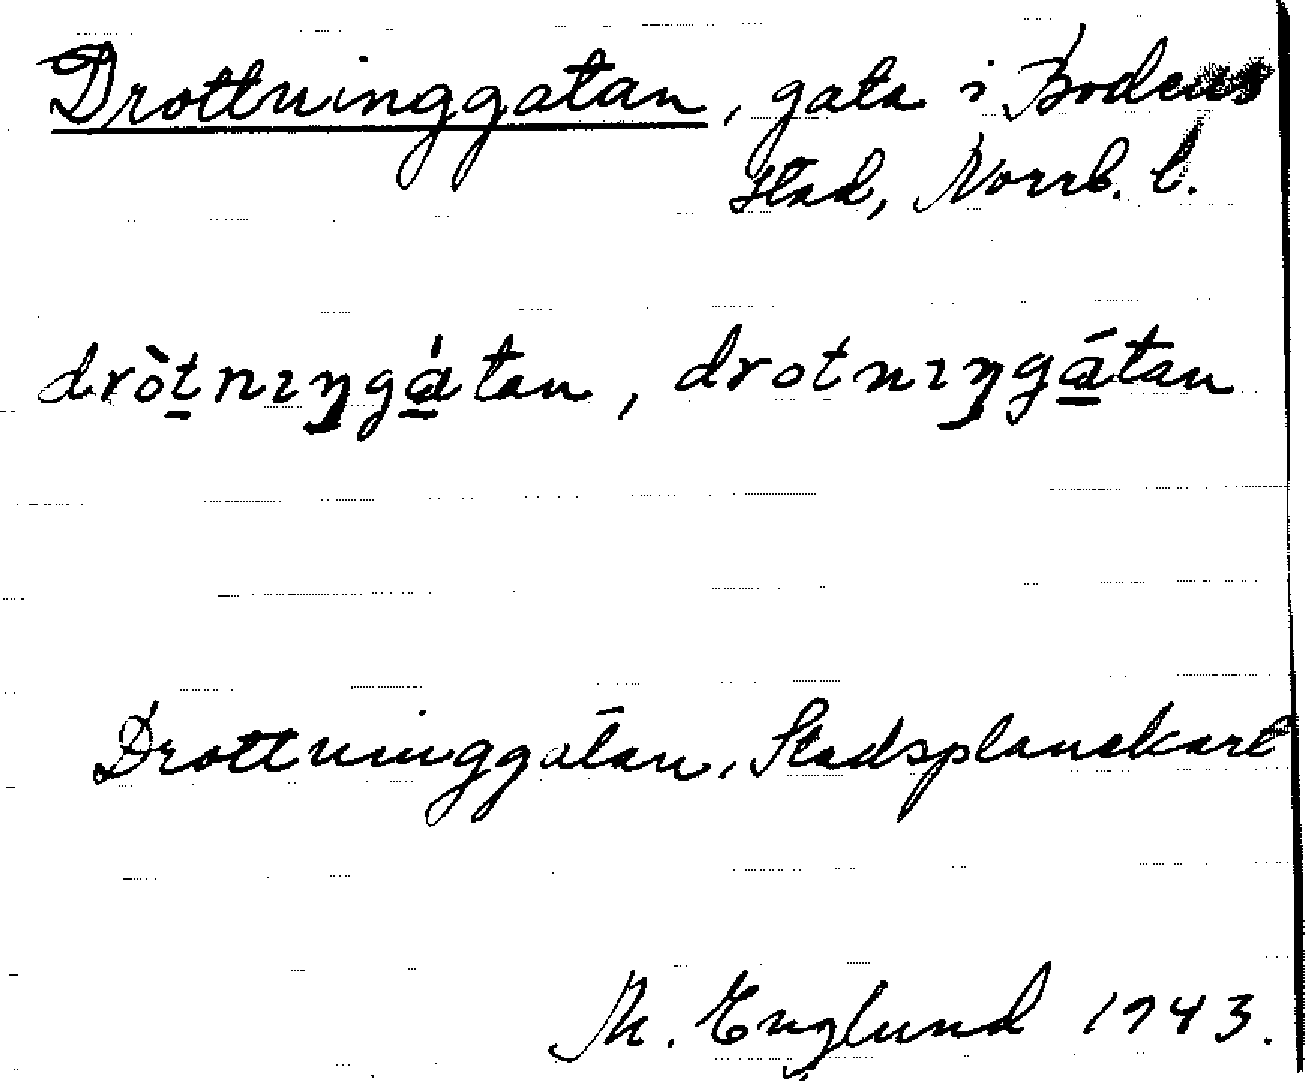 Drottninggatan, gata i Bodens
stad, Norrb. l.
dròtnıŋgátan, drotnıŋgátan
Drottninggatan, Stadsplanekart
M. Englund 1943.